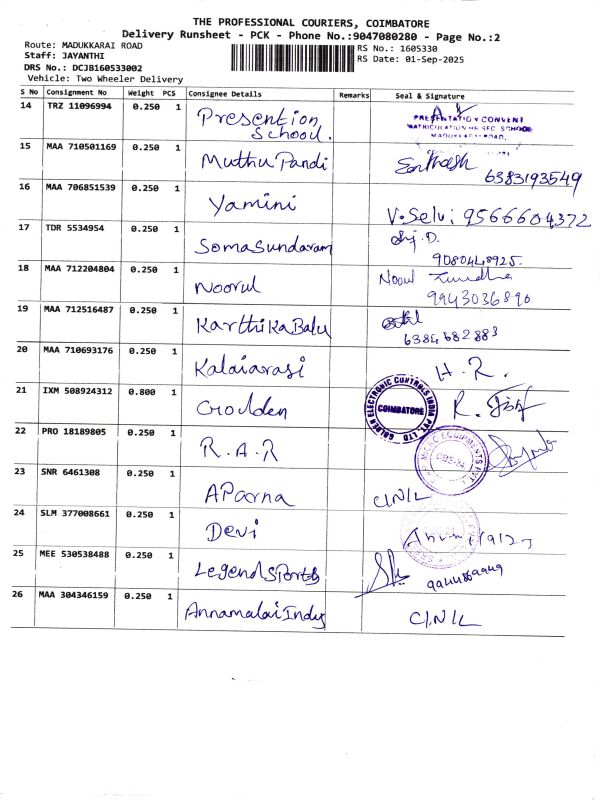 THE PROFESSIONAL COURIERS, COIMBATORE
Delivery Runsheet - PCK - Phone No.:9047080280 - Page No.:2
Route: MADUKKARAI ROAD
Staff: JAYANTHI
DRS No.: DCJB160533002
Vehicle: Two Wheeler Delivery
RS No.: 1605330
RS Date: 01-Sep-2025
S No Consignment No Weight PCS Consignee Details Remarks Seal & Signature
14 TRZ 11096994 0.250 1 Presention School. PRESENTATION CONVENT
MATRICULATION HR SEC. SCHOOL
MADUKKARAI ROAD,
15 MAA 710501169 0.250 1 Muthu Pandi Santhosh
6383193549
16 MAA 706851539 0.250 1 Yamini V. Selvi 9566604372
17 TDR 5534954 0.250 1 Somasundaram
9080448925.
18 MAA 712204804 0.250 1 Noorul Noorul
9943036890
19 MAA 712516487 0.250 1 Karthika Balu
6384682883
20 MAA 710693176 0.250 1 Kalaiarasi H. R.
21 IXM 508924312 0.800 1 Goulden GOLDEN ELECTRONIC CONTROLS INDIA PVT. LTD COIMBATORE R.
22 PRO 18189805 0.250 1 R.A.R
23 SNR 6461308 0.250 1 APoorna C/N/L
24 SLM 377008661 0.250 1 Devi
25 MEE 530538488 0.250 1 Legend Sports
26 MAA 304346159 0.250 1 Annamalai Indus C/N/L